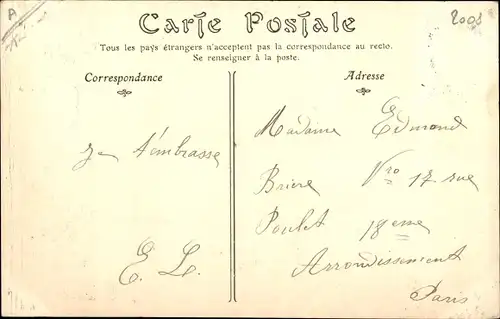 Carte Postale
Tous les pays étrangers n'acceptent pas la correspondance au recto.
Se renseigner à la poste.
Correspondance
Adresse
Je t'embrasse
E. L.
Madame Edmond
Briere Nro 17 rue
Poulet 18eme
Arrondissement
Paris